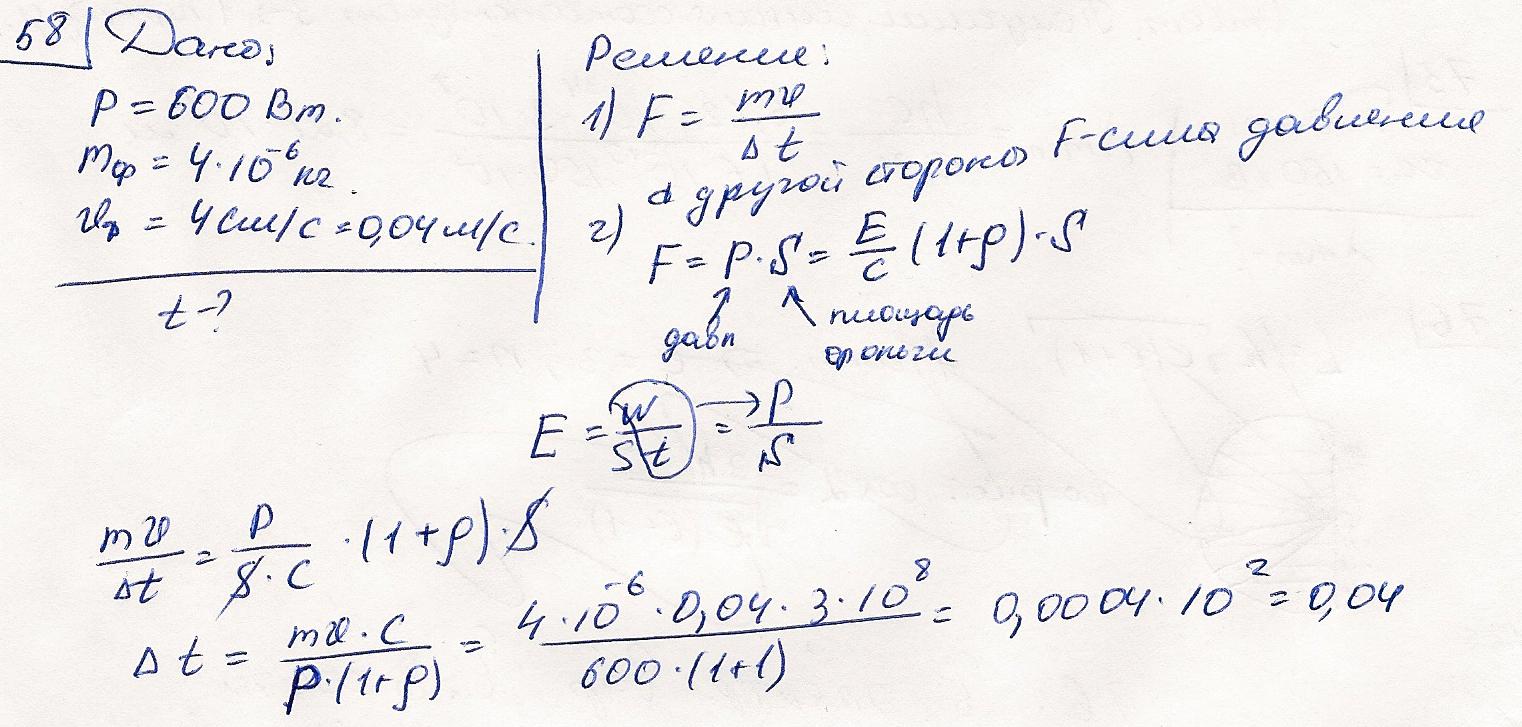 58 Дано:
P = 600 Вт.
mф = 4·10⁻⁶ кг.
vф = 4 см/с = 0,04 м/с.
t - ?
Решение:
1) F = mv / Δt
с другой стороны F-сила давления
2) F = p·S = E/c (1+ρ)·S
давл площадь
фольги
E = W/St = P/S
mv/Δt = P/S·c ·(1+ρ)·S
Δt = mv·c / P·(1+ρ) = 4·10⁻⁶·0,04·3·10⁸ / 600·(1+1) = 0,0004·10² = 0,04